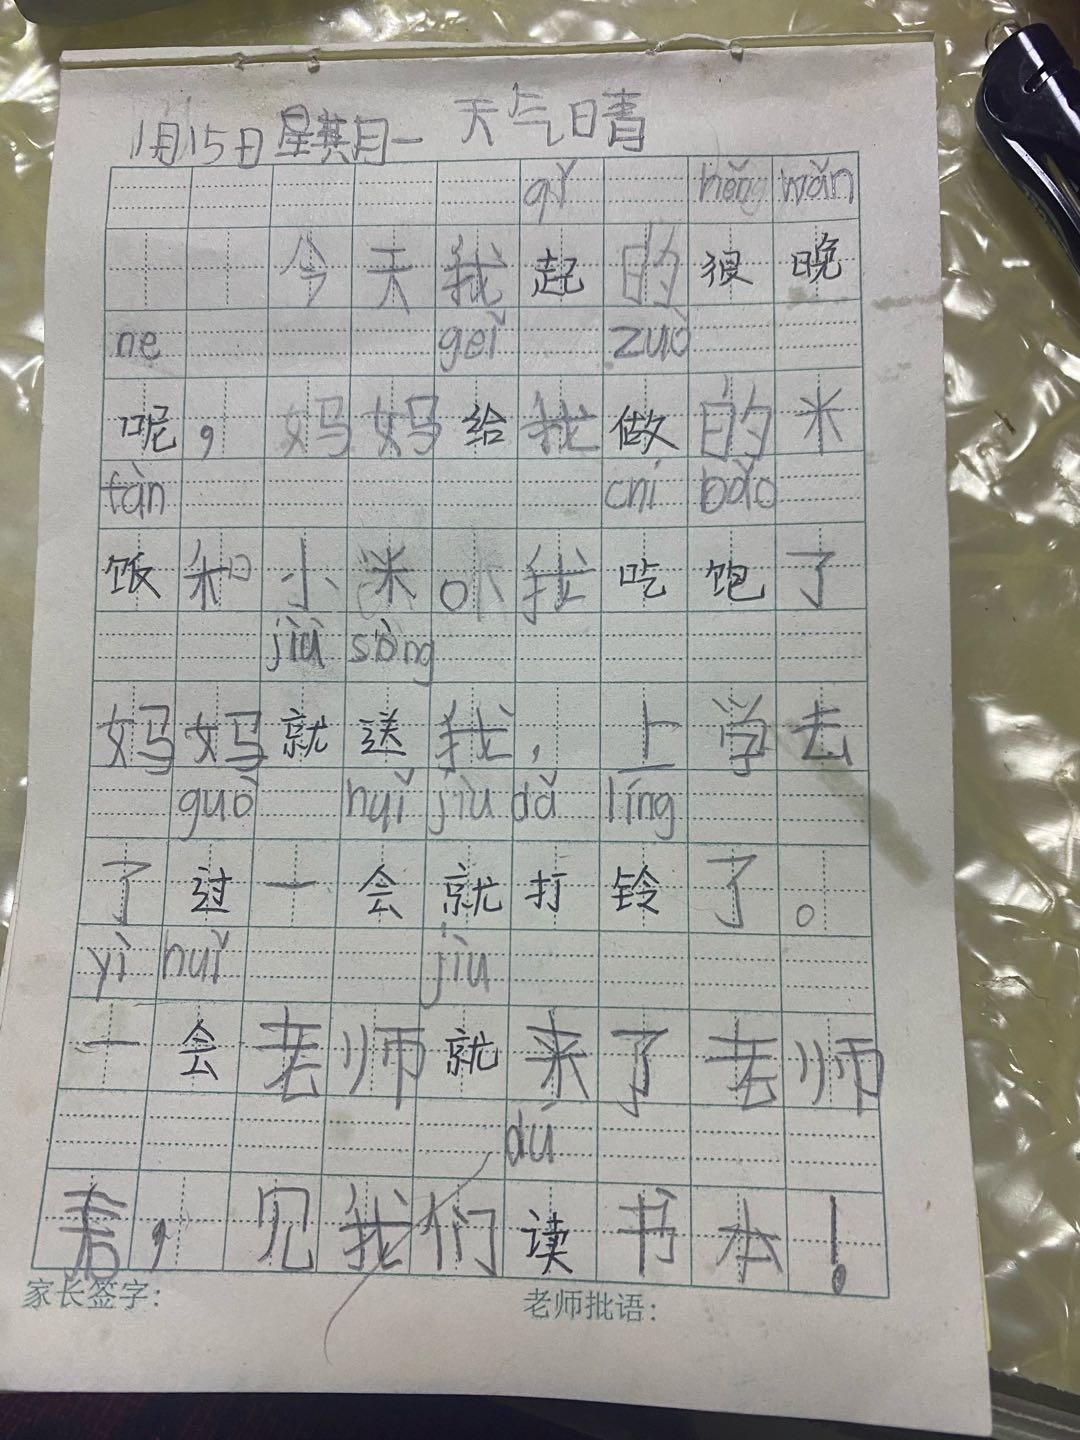 1月15日星其月一 天气晴
qǐ hěng wǎn
今天我起的很晚
ne geǐ zuò
呢，妈妈给我做的米
fàn chī bǎo
饭和小米。我吃饱了
jiù sòng
妈妈就送我，上学去
guò huǐ jiù dǎ líng
了过一会就打铃了。
yì huǐ jiù
一会老师就来了老师
dú
看，见我们读书本！
家长签字：
老师批语：